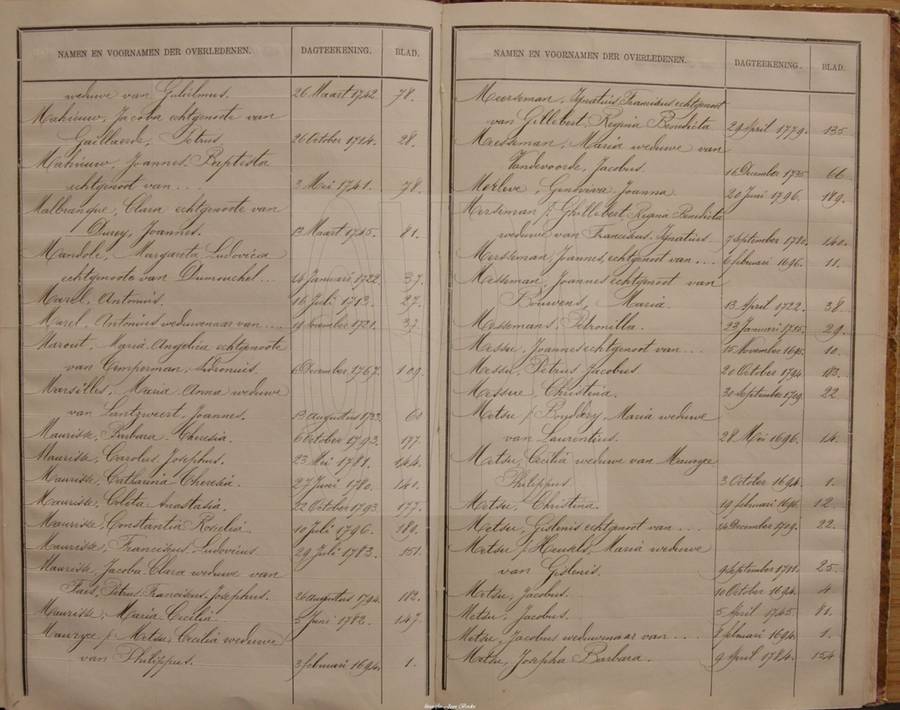 NAMEN EN VOORNAMEN DER OVERLEDENEN. DAGTEEKENING. BLAD.
weduwe van Gulielmus. 26 Maart 1742. 78.
Mahieuw, Jacoba echtgenoote van
Gaillaerde, Petrus. 26 October 1714. 28.
Mahieuw, Joannes Baptista
echtgenoot van ... 3 Mei 1741. 78.
Malbranque, Clara echtgenoote van
Durey, Joannes. 13 Maart 1745. 81.
Mandole, Margareta Ludovica
echtgenoote van Dumouchel ... Januari 1722. 37.
Marel, Antonius. 16 Juli 1713. 27.
Marel, Antonius weduwenaar van ... November 1721. 37.
Marout, Maria Angelica echtgenoote
van Timperman, 6 December 1767. 109.
Marsilles, Maria Anna weduwe
van Lantzweert, Joannes. 13 Augustus 1733. 60
Maurisse, Barbara Theresia. 6 October 1793. 177.
Maurisse, Carolus Josephus. 23 Mei 1781. 144.
Maurisse, Catharina Theresia. 27 Juni 1780. 141.
Maurisse, Coleta Anastasia. 22 October 1793. 177.
Maurisse, Constantia Rosalia. 10 Juli 1796. 189.
Maurisse, Franciscus Ludovicus. 29 Juli 1783. 151.
Maurisse, Jacoba Clara weduwe van
Pais, Petrus Franciscus Josephus. 26 Augustus 1794. 182.
Maurisse, Maria Cecilia. Juni 1782. 147.
Mauryce / Metsu, Cecilia weduwe
van Philippus. 3 februari 1694. 1.
NAMEN EN VOORNAMEN DER OVERLEDENEN. DAGTEEKENING. BLAD.
Meerseman, Ignatius Franciscus echtgenoot
van Gillebert, Regina Benedicta 29 April 1779. 135
Meesseman, Maria weduwe van
Vandevoorde, Jacobus. 16 December 1735 66.
Merlevé, Genoviva Joanna 20 Juni 1796. 189.
Merseman / Ghillebert Regina Benedicta
weduwe van Franciscus Ignatius. 7 September 1780. 140.
Mersseman, Joannes, echtgenoot van ... 6 februari 1696. 11.
Messeman, Joannes echtgenoot van
Bouwens, Maria. 13 April 1722. 38.
Messemans, Petronilla. 22 Januari 1715. 29.
Messeu, Joannes echtgenoot van ... 15 November 1695. 10.
Messeu, Petrus Jacobus. 20 October 1794. 183.
Messue, Christina. 30 September 1709. 22.
Metsu / Bouddry, Maria weduwe
van Laurentius. 28 Mei 1696. 14.
Metsu, Cecilia weduwe van Mauryce
Philippus 3 October 1694. 1.
Metsu, Christina. 19 februari 1696. 12.
Metsu, Gislenis echtgenoot van ... December 1709. 22.
Metsu / Heukels, Maria weduwe
van Gislenis. 9 September 1711. 25.
Metsu, Jacobus. 10 October 1694. 4
Metsu, Jacobus. 5 April 1745. 81.
Metsu, Jacobus weduwenaar van ... februari 1694. 1.
Metsu, Josepha Barbara. 9 April 1784. 154